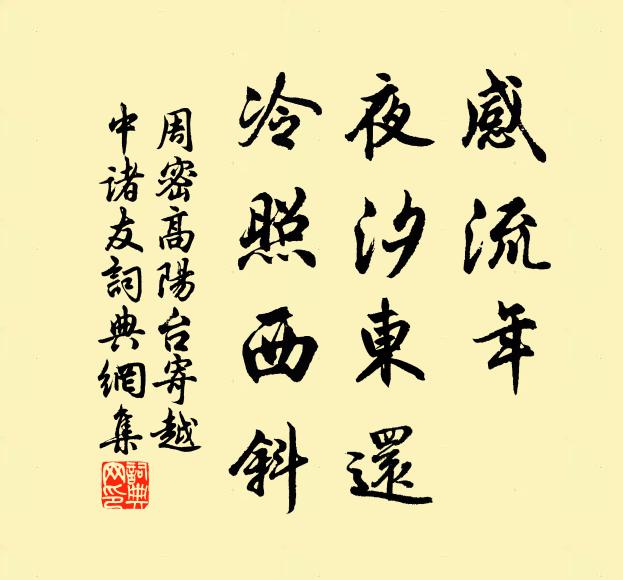 感流年
夜汐東還
冷照西斜
周密高陽台寄越
中诸友詞典網集
詞典
网印